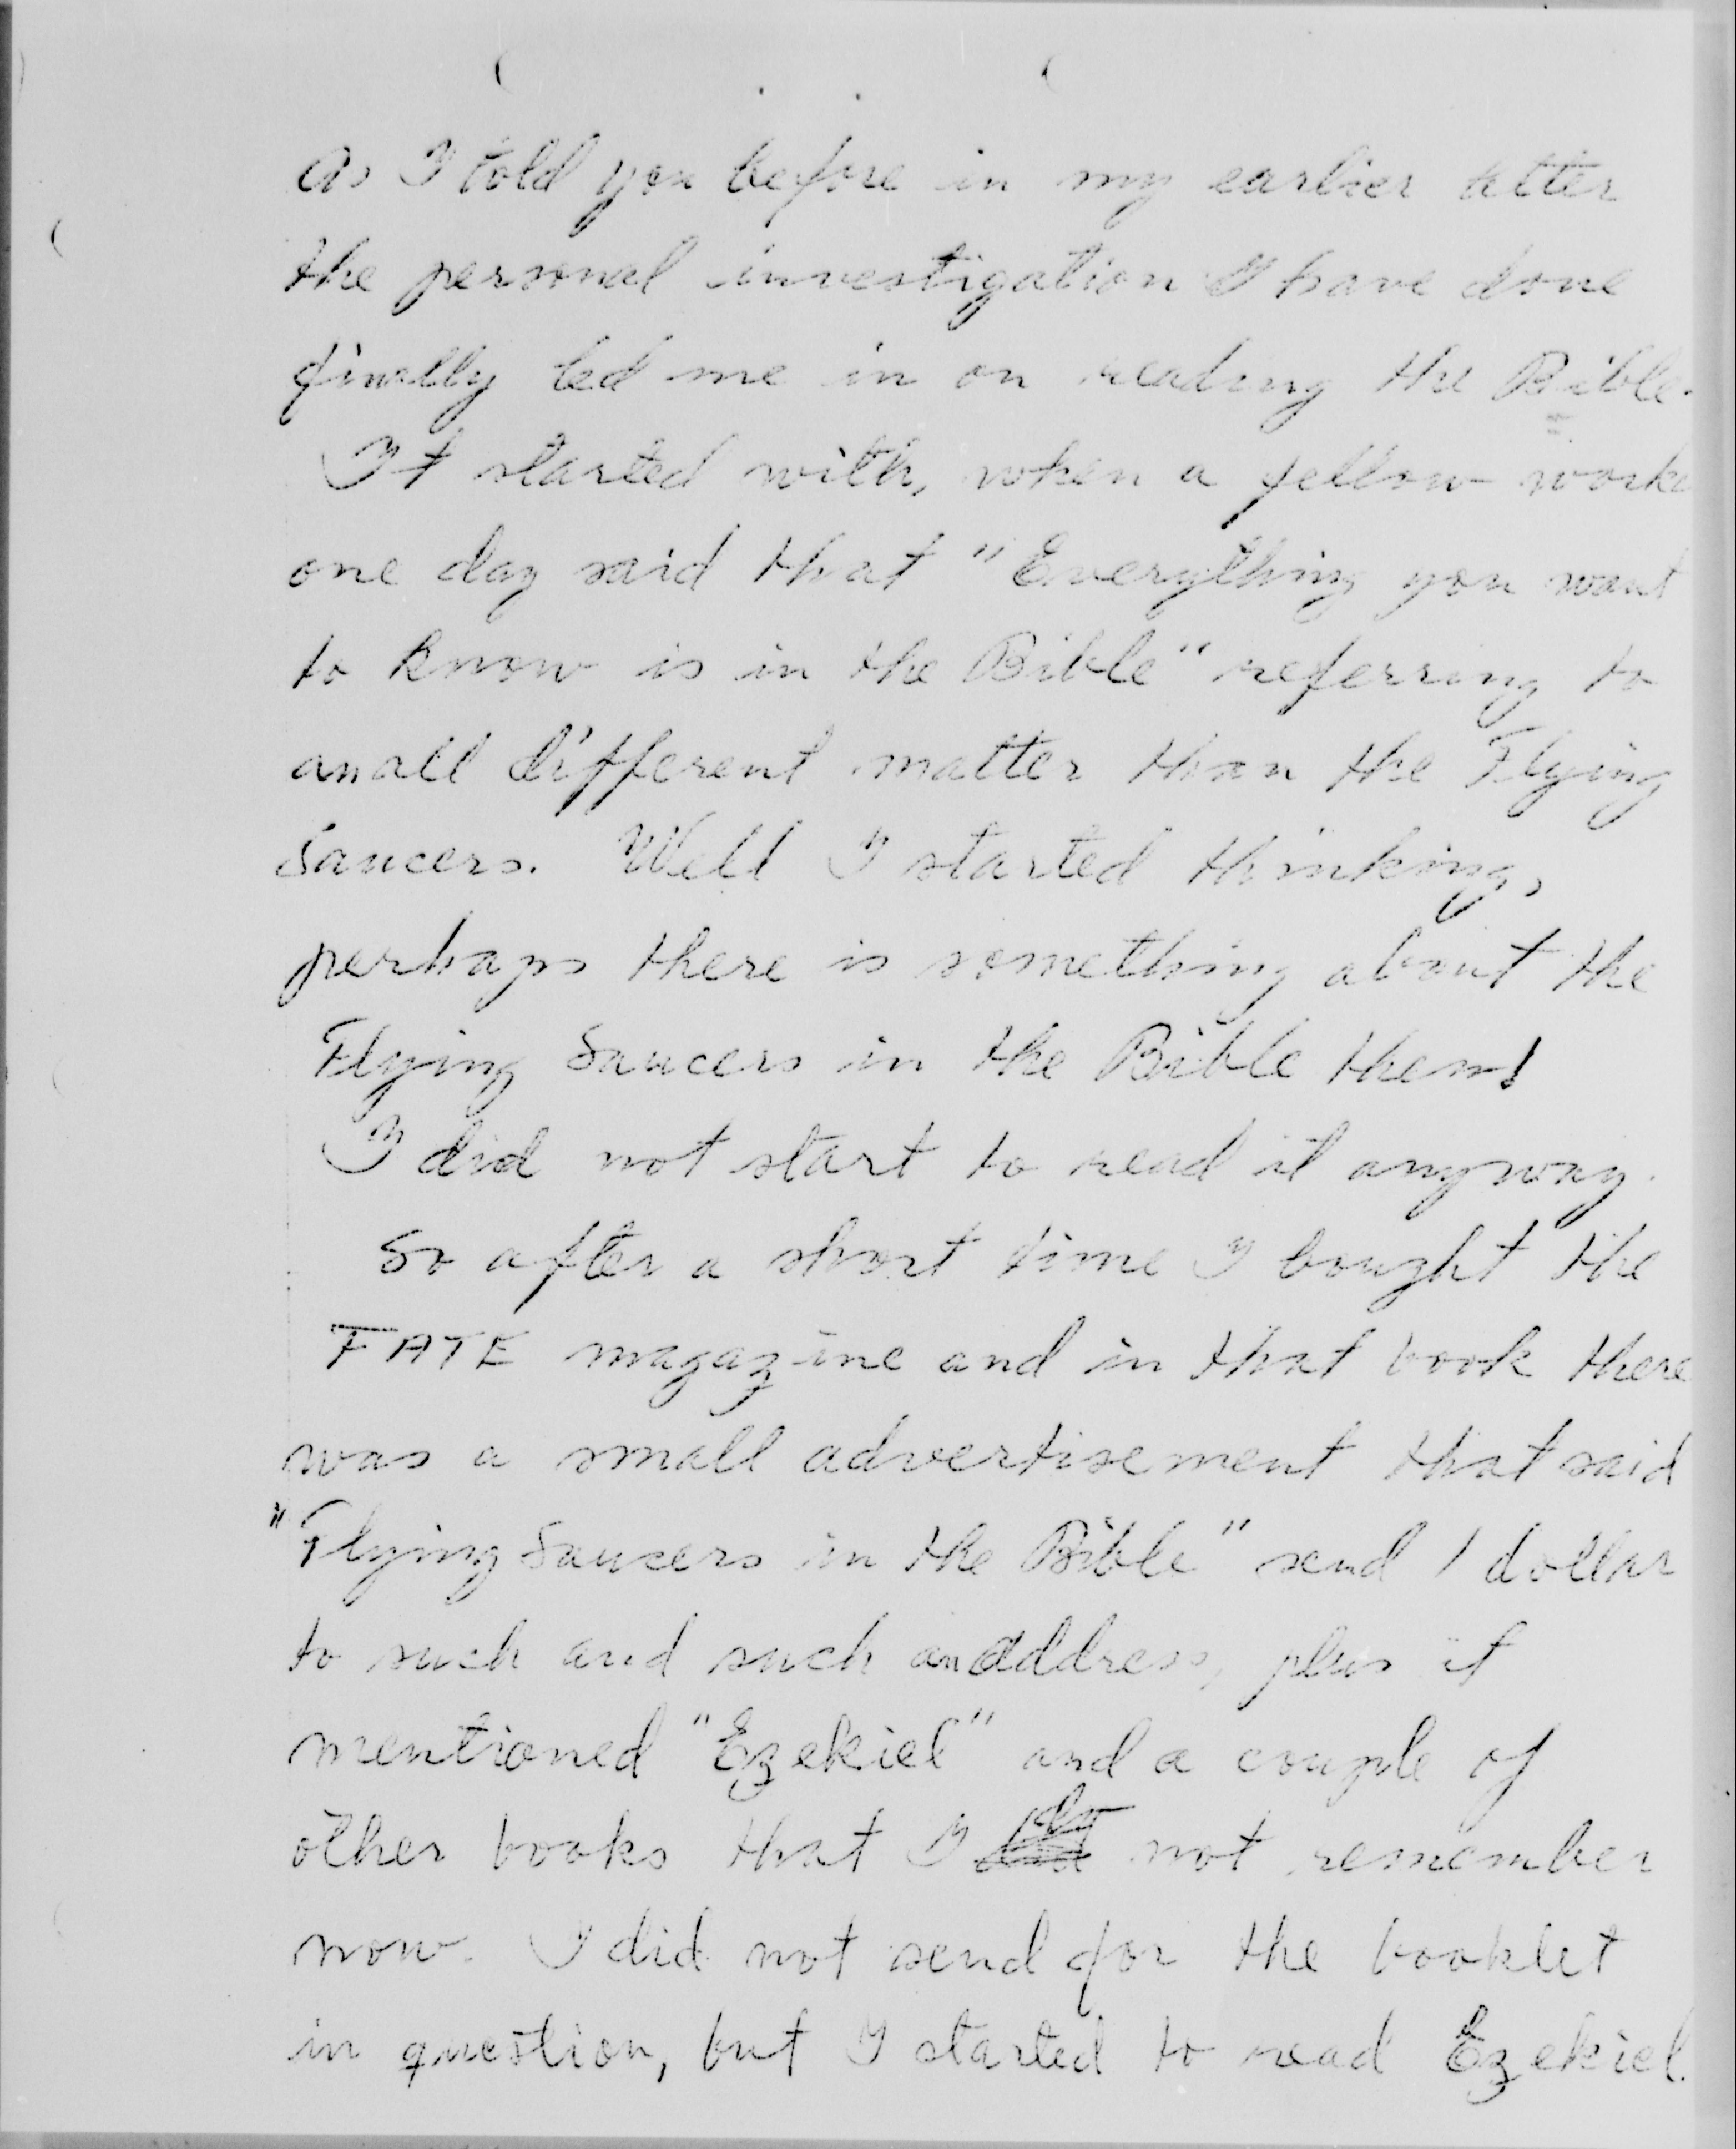 As I told you before in my earlier letter
the personal investigation I have done
finally led me in on reading the Bible.
It started with, when a fellow worke
one day said that "Everything you want
to know is in the Bible" referring to
an all different matter than the Flying
Saucers. Well I started thinking,
perhaps there is something about the
Flying Saucers in the Bible then!
I did not start to read it anyway.
So after a short time I bought the
FATE magazine and in that book there
was a small advertisement that said
"Flying Saucers in the Bible" send 1 dollar
to such and such an address, plus it
mentioned "Ezekiel" and a couple of
other books that I do not remember
now. I did not send for the booklet
in question, but I started to read Ezekiel.